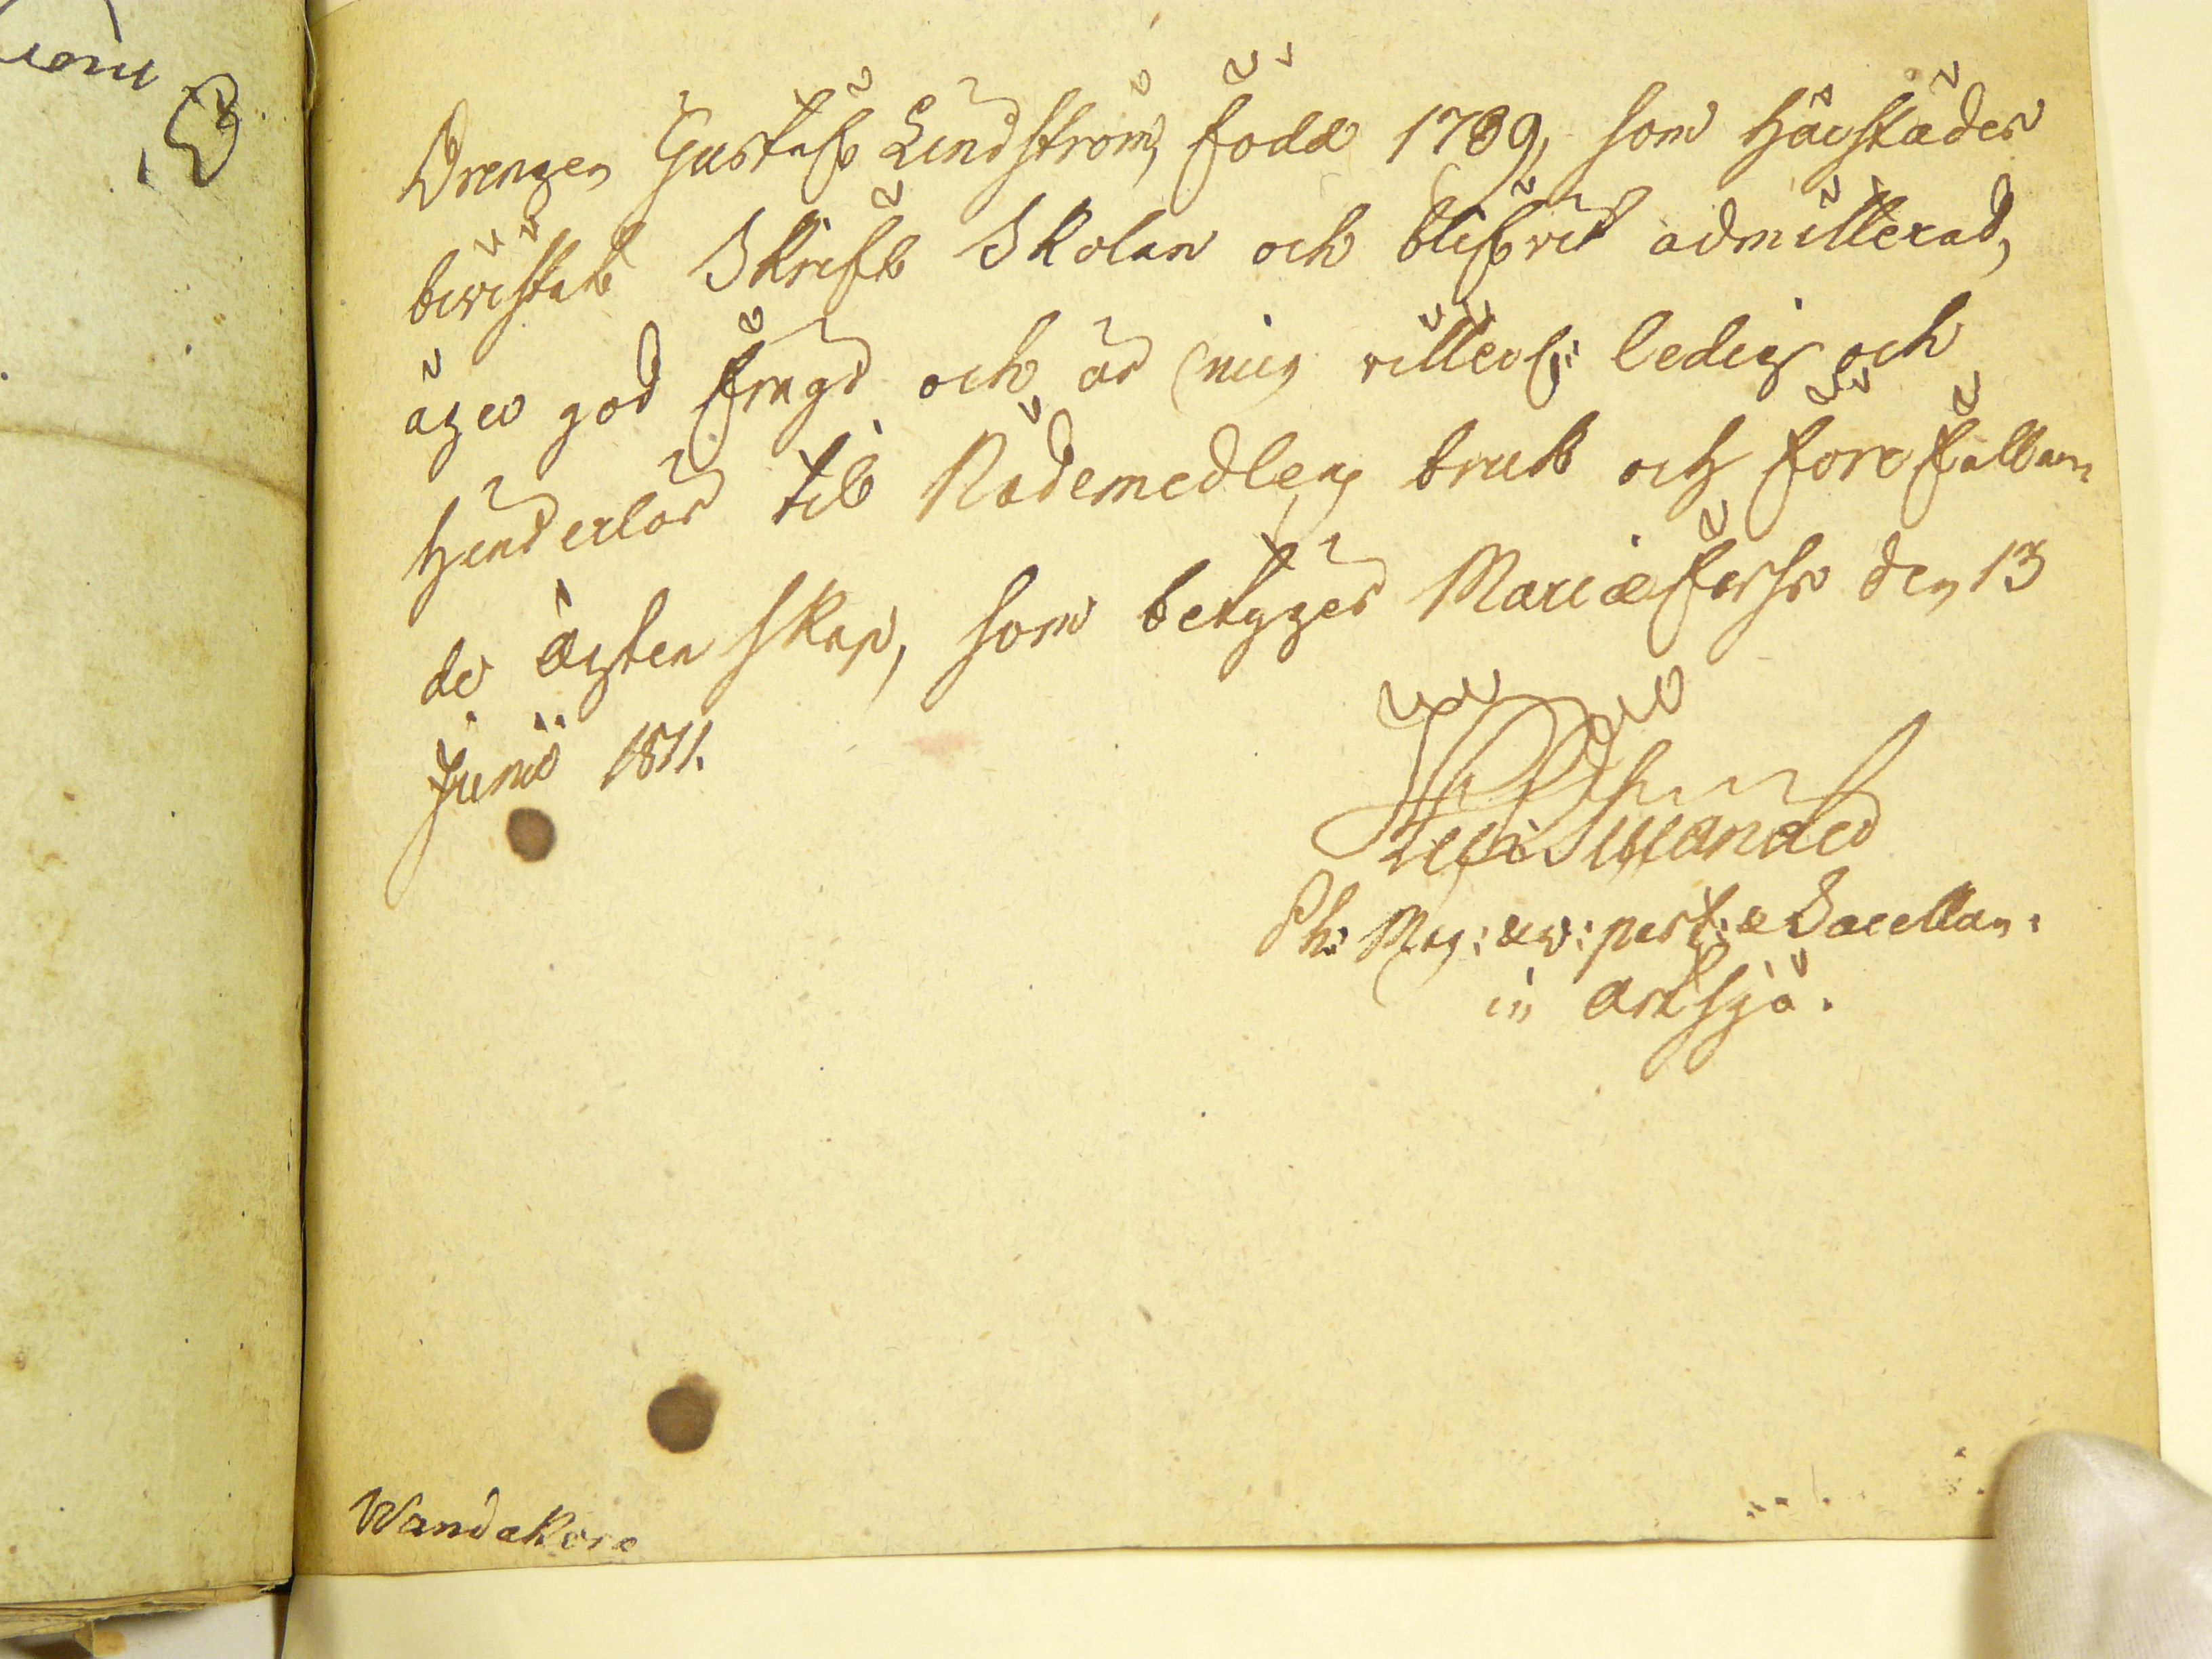 Drengen Gustaf Lindström, född 1789, som härstädes
bevistat Skrift Skolan och blifvit admitterad,
äger god frägd och är mig vitterl: ledig och
hinderlös til Nådemedlens bruk och förefallan
de ägtenskap, som betygar Mariæfors den 13
Junii 1811.
Ph: Mag: past: & Sacellan:
in Artsjö.
Wandakora